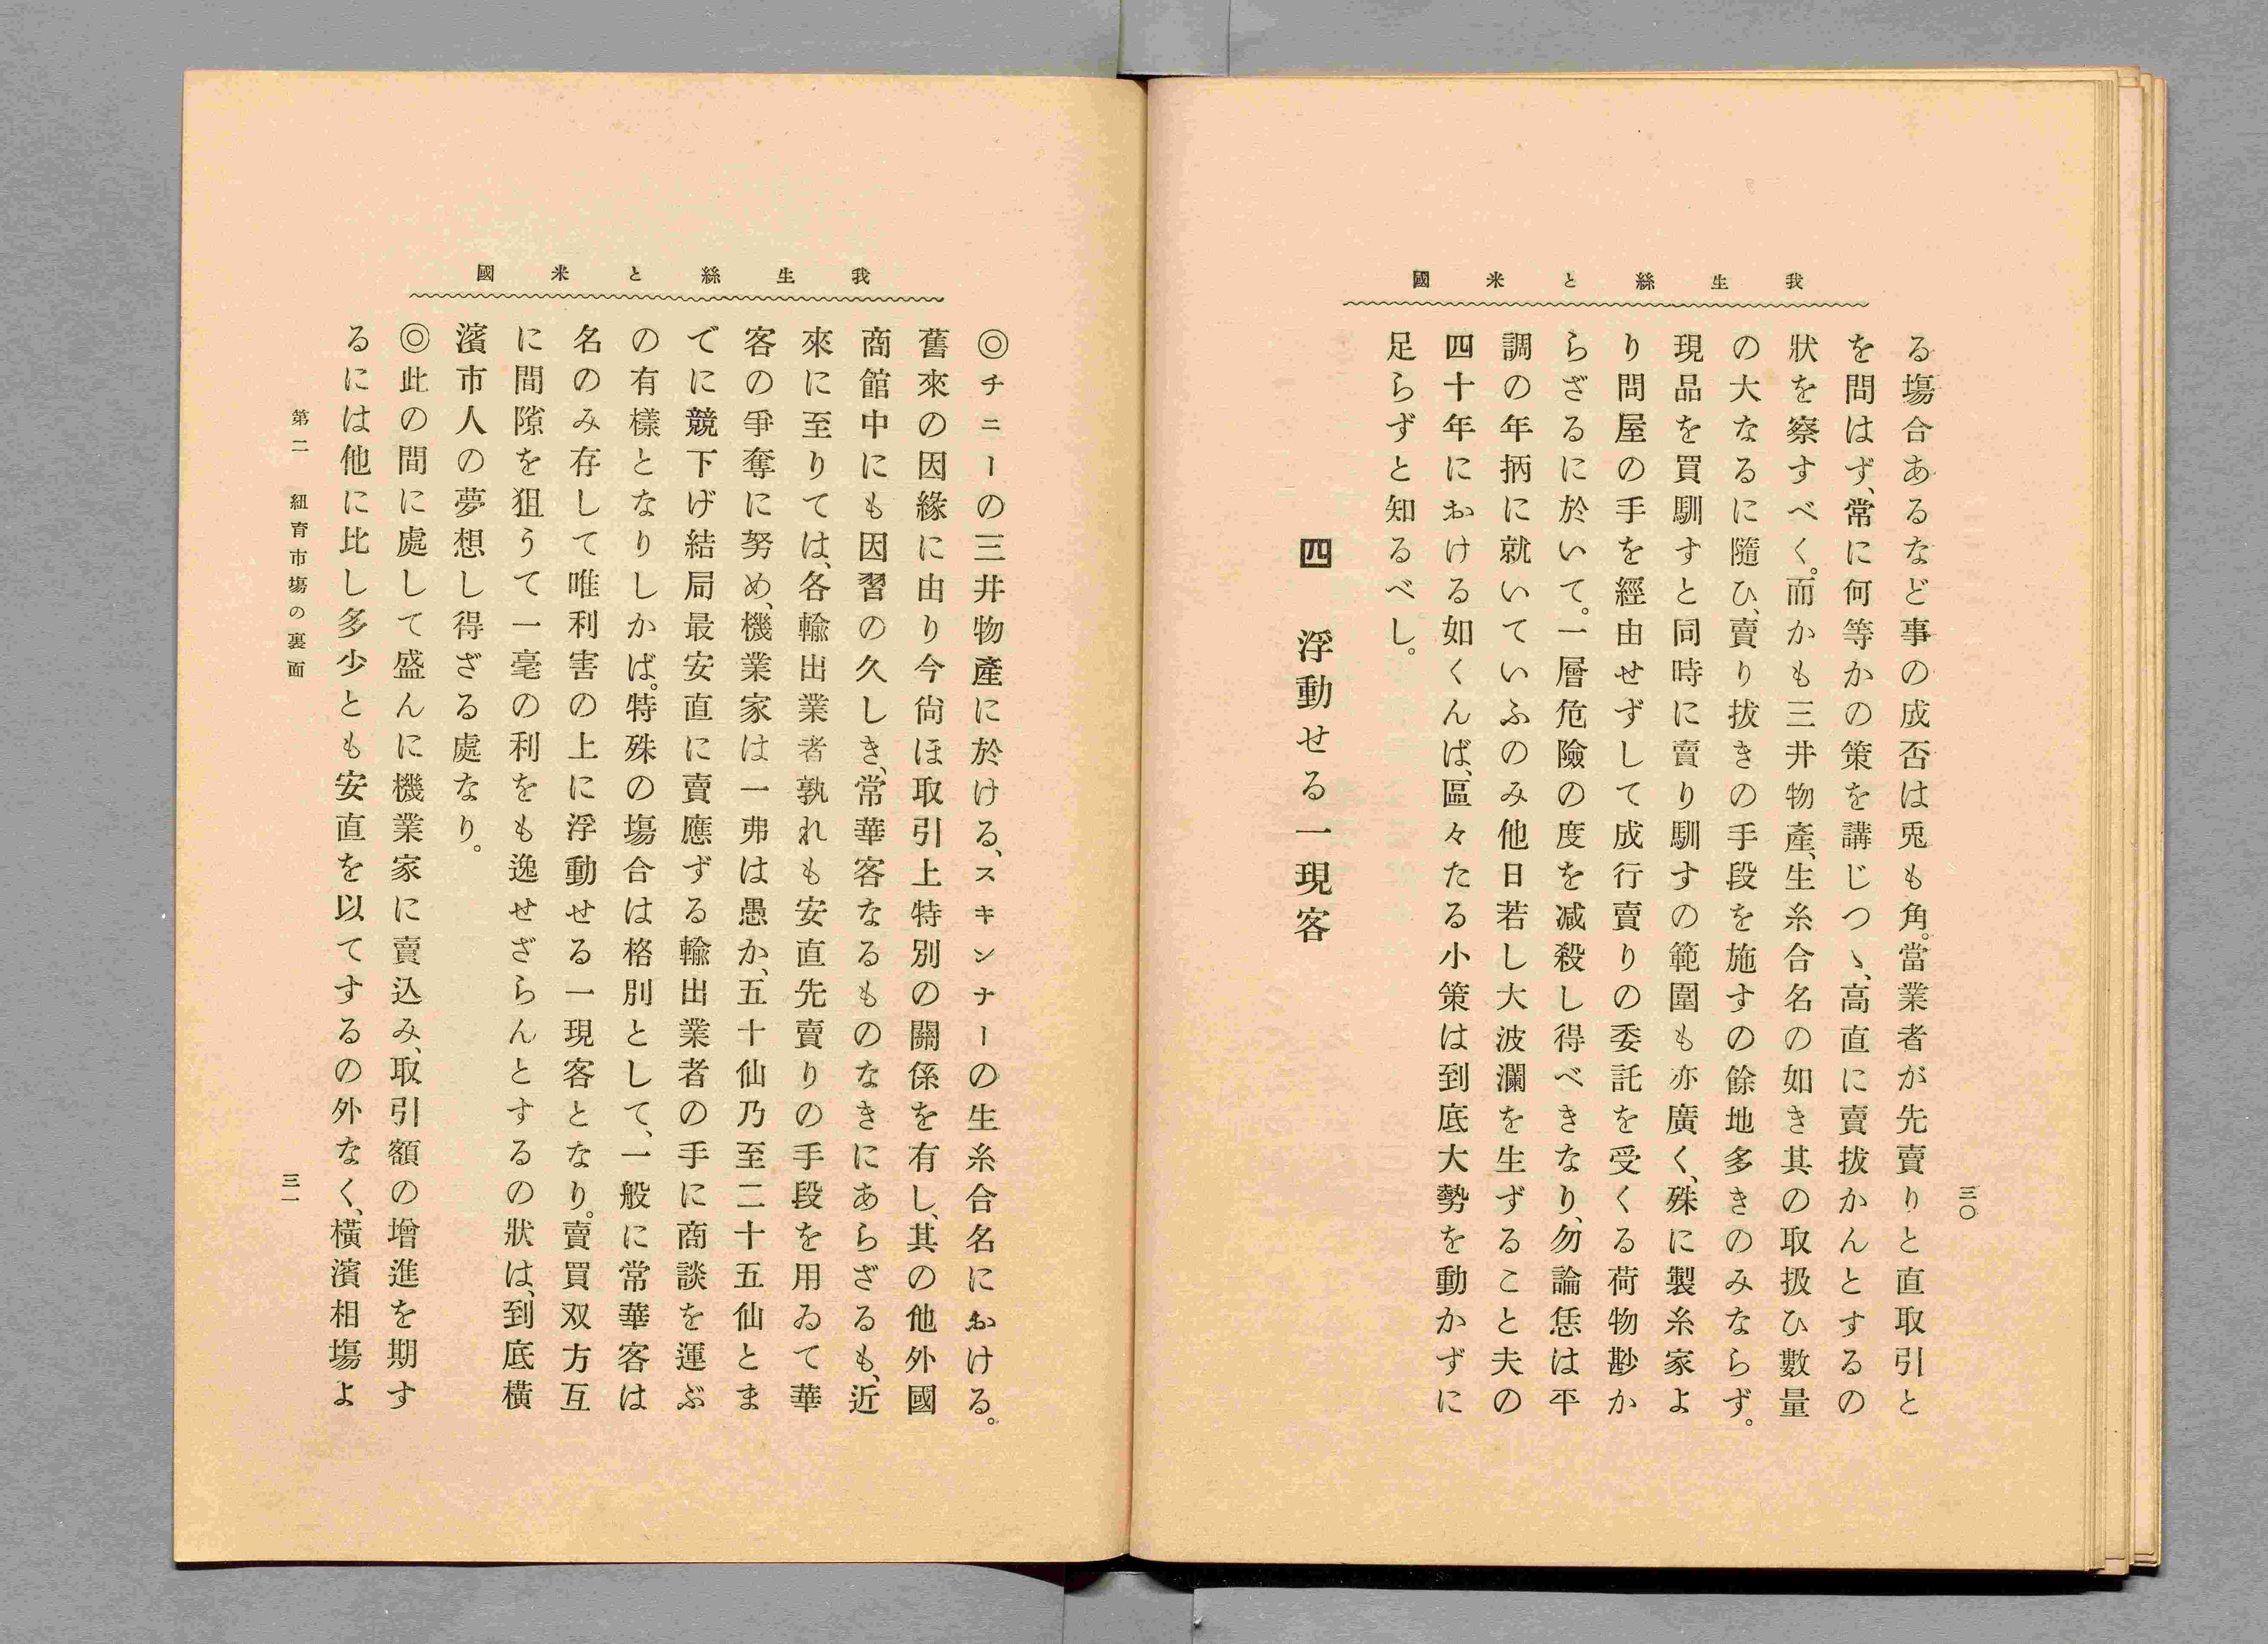 我生絲と米國
る塲合あるなど事の成否は兎も角。當業者が先賣りと直取引と
を問はず、常に何等かの策を講じつゝ、高直に賣拔かんとするの
狀を察すべく。而かも三井物產、生糸合名の如き其の取扱ひ數量
の大なるに隨ひ、賣り拔きの手段を施すの餘地多きのみならず。
現品を買馴すと同時に賣り馴すの範圍も亦廣く、殊に製糸家よ
り問屋の手を經由せずして成行賣りの委託を受くる荷物尠か
らざるに於いて。一層危險の度を減殺し得べきなり、勿論恁は平
調の年柄に就いていふのみ他日若し大波瀾を生ずること夫の
四十年における如くんば、區々たる小策は到底大勢を動かずに
足らずと知るべし。
四 浮動せる一現客
三〇
我生絲と米國
◎チニーの三井物產に於ける、スキンナーの生糸合名における。
舊來の因緣に由り今尙ほ取引上特別の關係を有し、其の他外國
商館中にも因習の久しき、常華客なるものなきにあらざるも、近
來に至りては、各輸出業者孰れも安直先賣りの手段を用ゐて華
客の爭奪に努め、機業家は一弗は愚か、五十仙乃至二十五仙とま
でに競下げ結局最安直に賣應ずる輸出業者の手に商談を運ぶ
の有樣となりしかば。特殊の塲合は格別として、一般に常華客は
名のみ存して唯利害の上に浮動せる一現客となり。賣買双方互
に間隙を狙うて一毫の利をも逸せざらんとするの狀は、到底橫
濱市人の夢想し得ざる處なり。
◎此の間に處して盛んに機業家に賣込み、取引額の增進を期す
るには他に比し多少とも安直を以てするの外なく、橫濱相塲よ
第二 紐育市塲の裏面
三一